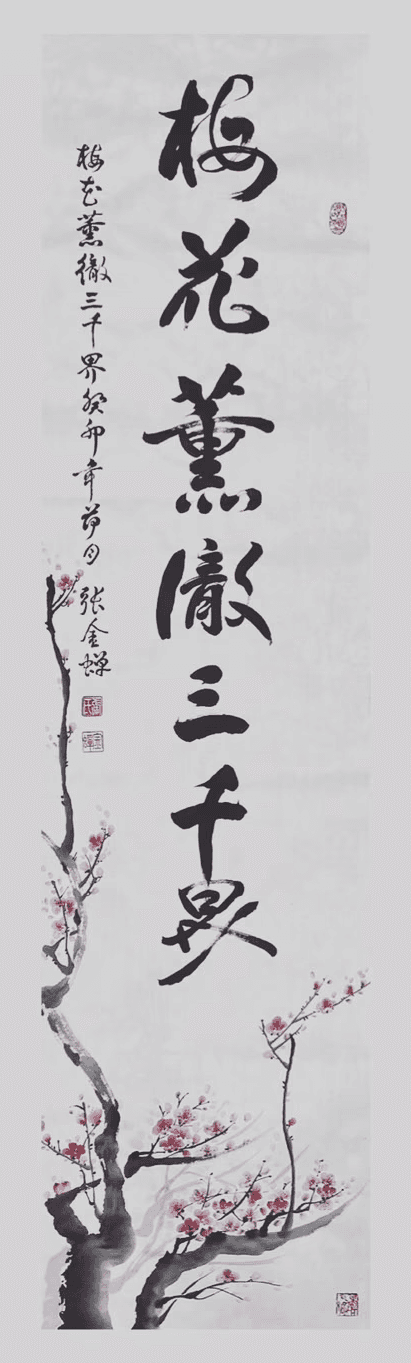 梅花薰徹三千界
梅花薰徹三千界癸卯年节月
张金蝉